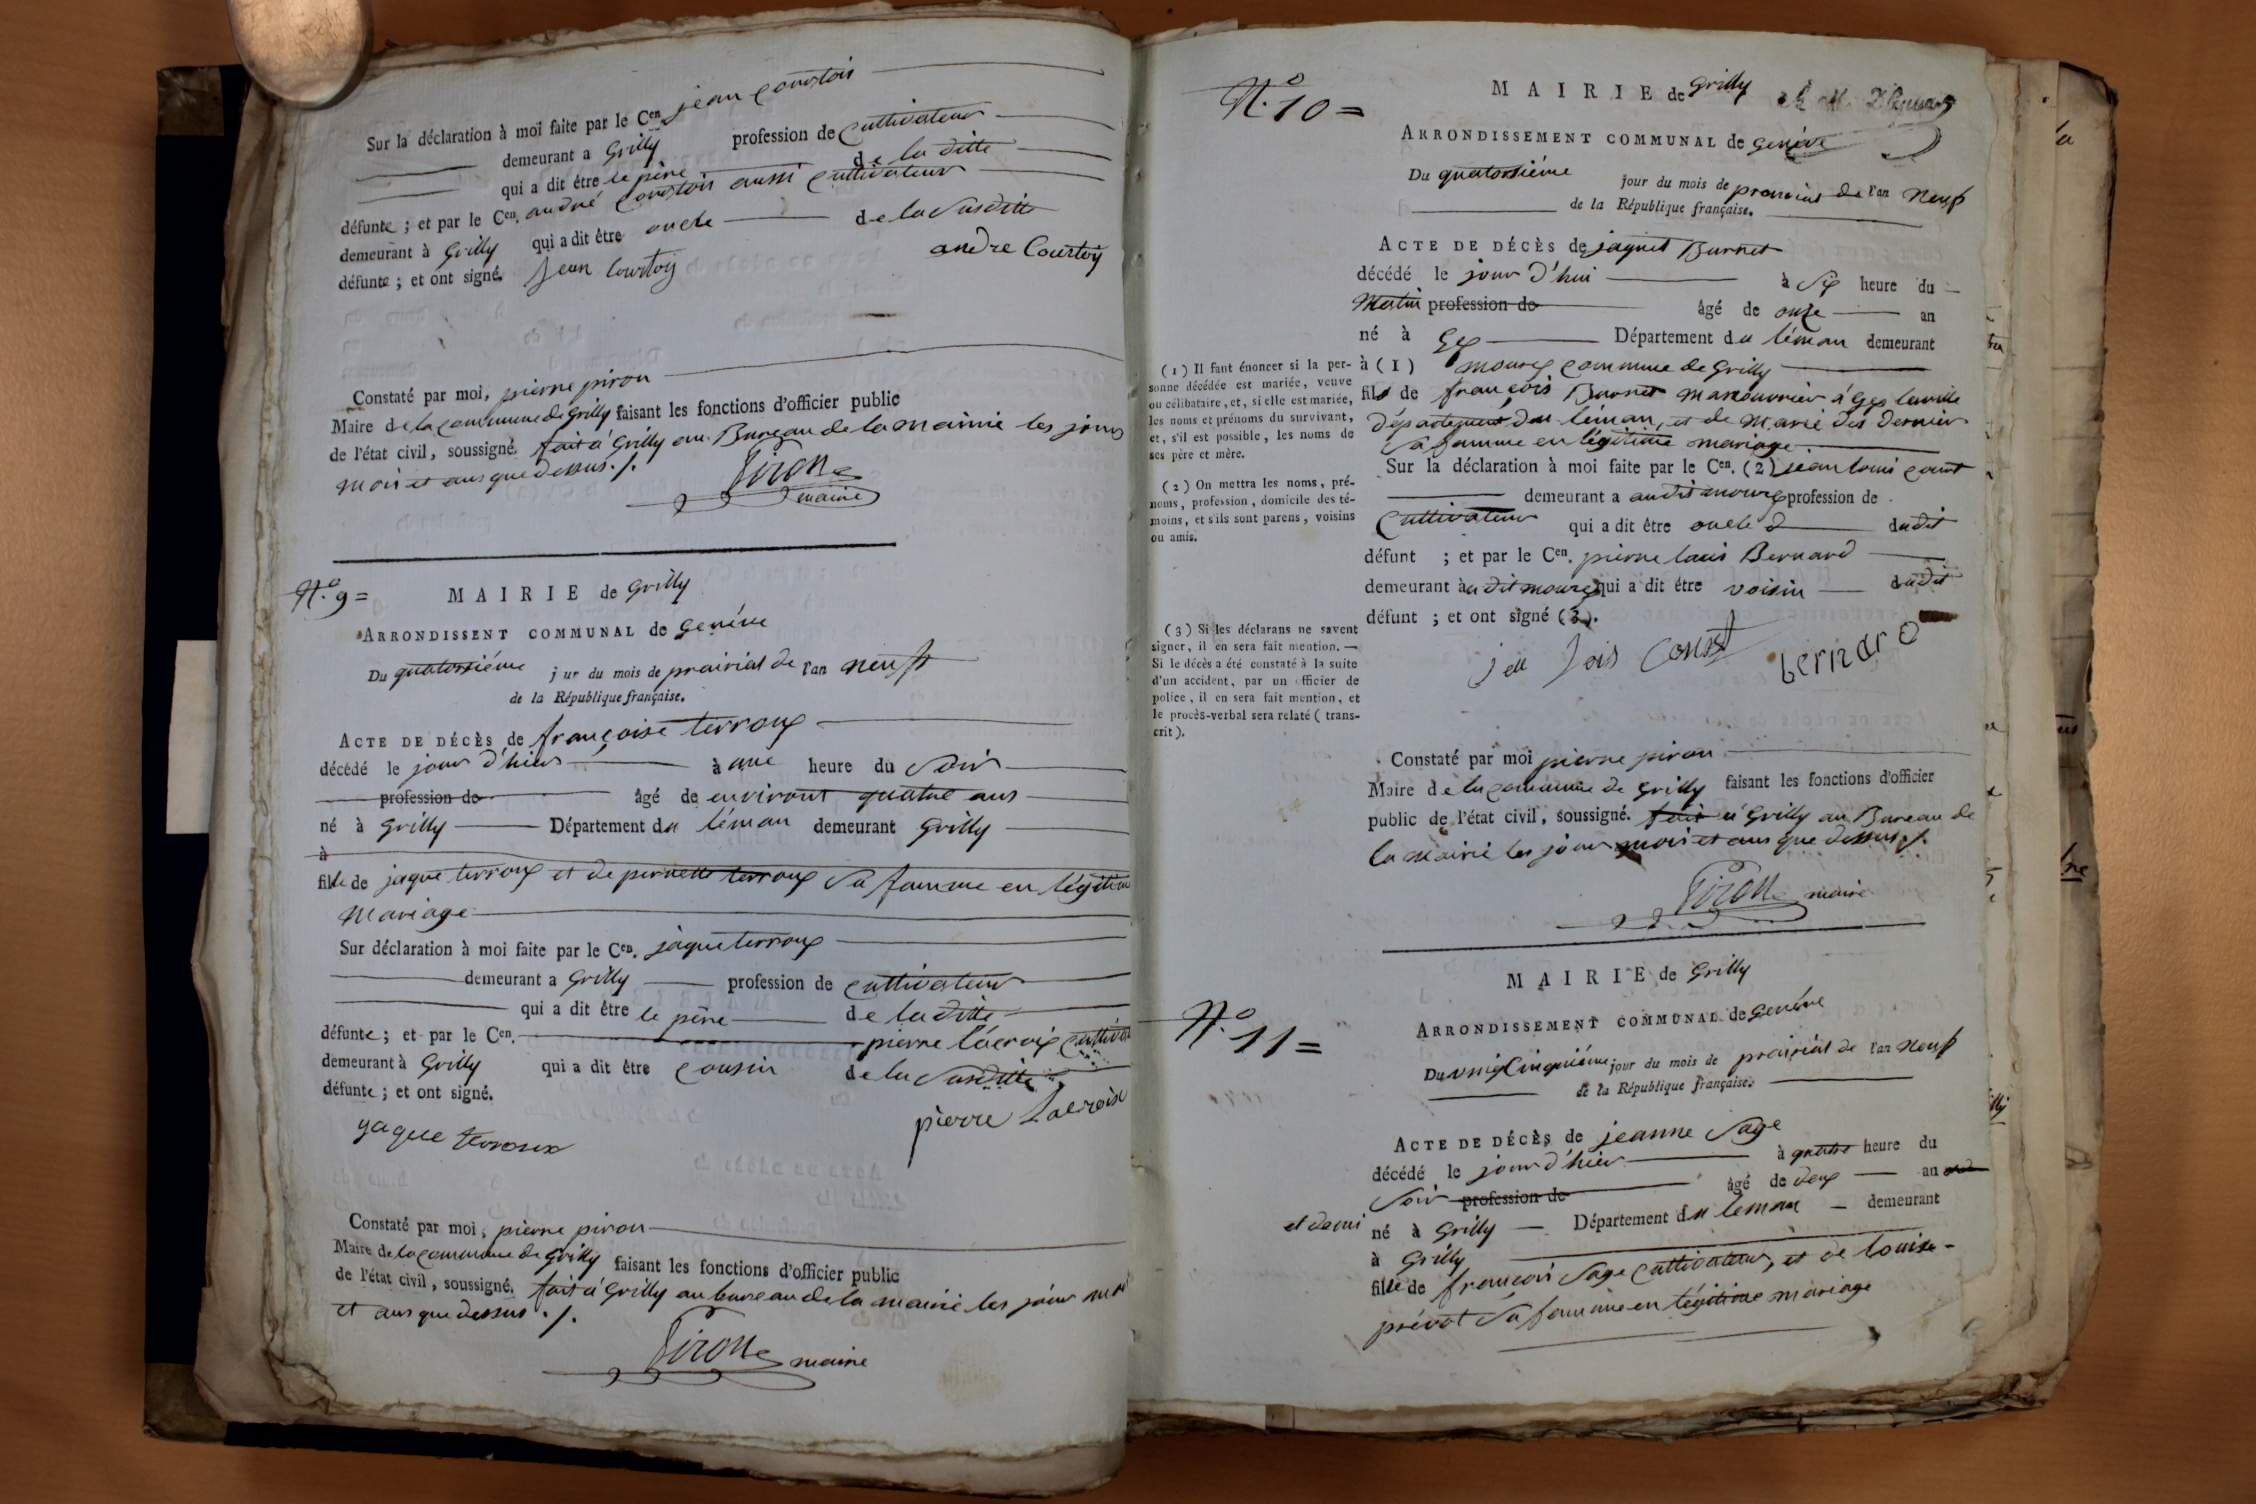 Sur la déclaration à moi faite par le Cen. jean courtois
demeurant a Grilly profession de cultivateur
qui a dit être le père de la ditte
défunte ; et par le Cen. andré courtois aussi cultivateur
demeurant à Grilly qui a dit être oncle de la susditte
défunte ; et ont signé.
Jean Courtoy andre Courtoy
Constaté par moi, pierre piron
Maire de la commune de Grilly faisant les fonctions d'officier public
de l'état civil, soussigné. fait à Grilly au Bureau de la mairie les jour
mois et ans que dessus ./.
Piron
maire
N.o 9 =
MAIRIE de Grilly
ARRONDISSENT COMMUNAL de Genéve
Du quatorsiéme j ur du mois de prairial de l'an neuf
de la République française.
ACTE DE DÉCÈS de françoise terroux
décédé le jour d'hier à une heure du soir
profession de âgé de environt quatre ans
né à Grilly Département du léman demeurant Grilly
à
fille de jaque terroux et de pernette terroux sa famme en légitime
mariage
Sur déclaration à moi faite par le Cen. jaque terroux
demeurant a Grilly profession de cultivateur
qui a dit être le père de la ditte
défunte ; et par le Cen. pierre lacroix cultiva
demeurant à Grilly qui a dit être cousin de la susditte
défunte ; et ont signé.
yaque terroux pierre Lacroix
Constaté par moi, pierre piron
Maire de la commune de Grilly faisant les fonctions d'officier public
de l'état civil, soussigné. fait à Grilly au bureau de la mairie les jour moi
et ans que dessus ./.
Piron maire
N.o 10 =
MAIRIE de Grilly
ARRONDISSEMENT COMMUNAL de Genéve
Du quatorsiéme jour du mois de prairial de l'an neuf
de la République française.
ACTE DE DÉCÈS de jaques Burnet
décédé le jour d'hui à six heure du
Matin profession de âgé de onze an
né à Gex Département du léman demeurant
à (1) mourex commune de Grilly
fils de françois Burnet manouvrier à Gex la ville
département du léman, et de Marie des dernier
sa famme en légitime mariage
Sur la déclaration à moi faite par le Cen. (2) jean louis court
demeurant a au dit mourex profession de
cultivateur qui a dit être oncle d dudit
défunt ; et par le Cen. pierre louis Bernard
demeurant à au dit mourex qui a dit être voisin dudit
défunt ; et ont signé (3).
bernard
(1) Il faut énoncer si la per-
sonne décédée est mariée, veuve
ou célibataire, et, si elle est mariée,
les noms et prénoms du survivant,
et, s'il est possible, les noms de
ses père et mère.
(2) On mettra les noms, pré-
noms, profession, domicile des té-
moins, et s'ils sont parens, voisins
ou amis.
(3) Si les déclarans ne savent
signer, il en sera fait mention. —
Si le décès a été constaté à la suite
d'un accident, par un officier de
police, il en sera fait mention, et
le procès-verbal sera relaté ( trans-
crit ).
Constaté par moi pierre piron
Maire de la commune de Grilly faisant les fonctions d'officier
public de l'état civil, soussigné. fait à Grilly au Bureau de
la mairie les jour mois et ans que dessus ./.
Piron maire
N.o 11 =
MAIRIE de Grilly
ARRONDISSEMENT COMMUNAL de Genéve
Du vingt cinquiéme jour du mois de prairial de l'an neuf
de la République française.
ACTE DE DÉCÈS de jeanne Sage
décédé le jour d'hier à quatre heure du
Soir profession de âgé de deux an
et demi
né à Grilly Département du leman demeurant
à Grilly
fille de françois Sage cultivateur, et de louise
prévot sa famme en légitime mariage